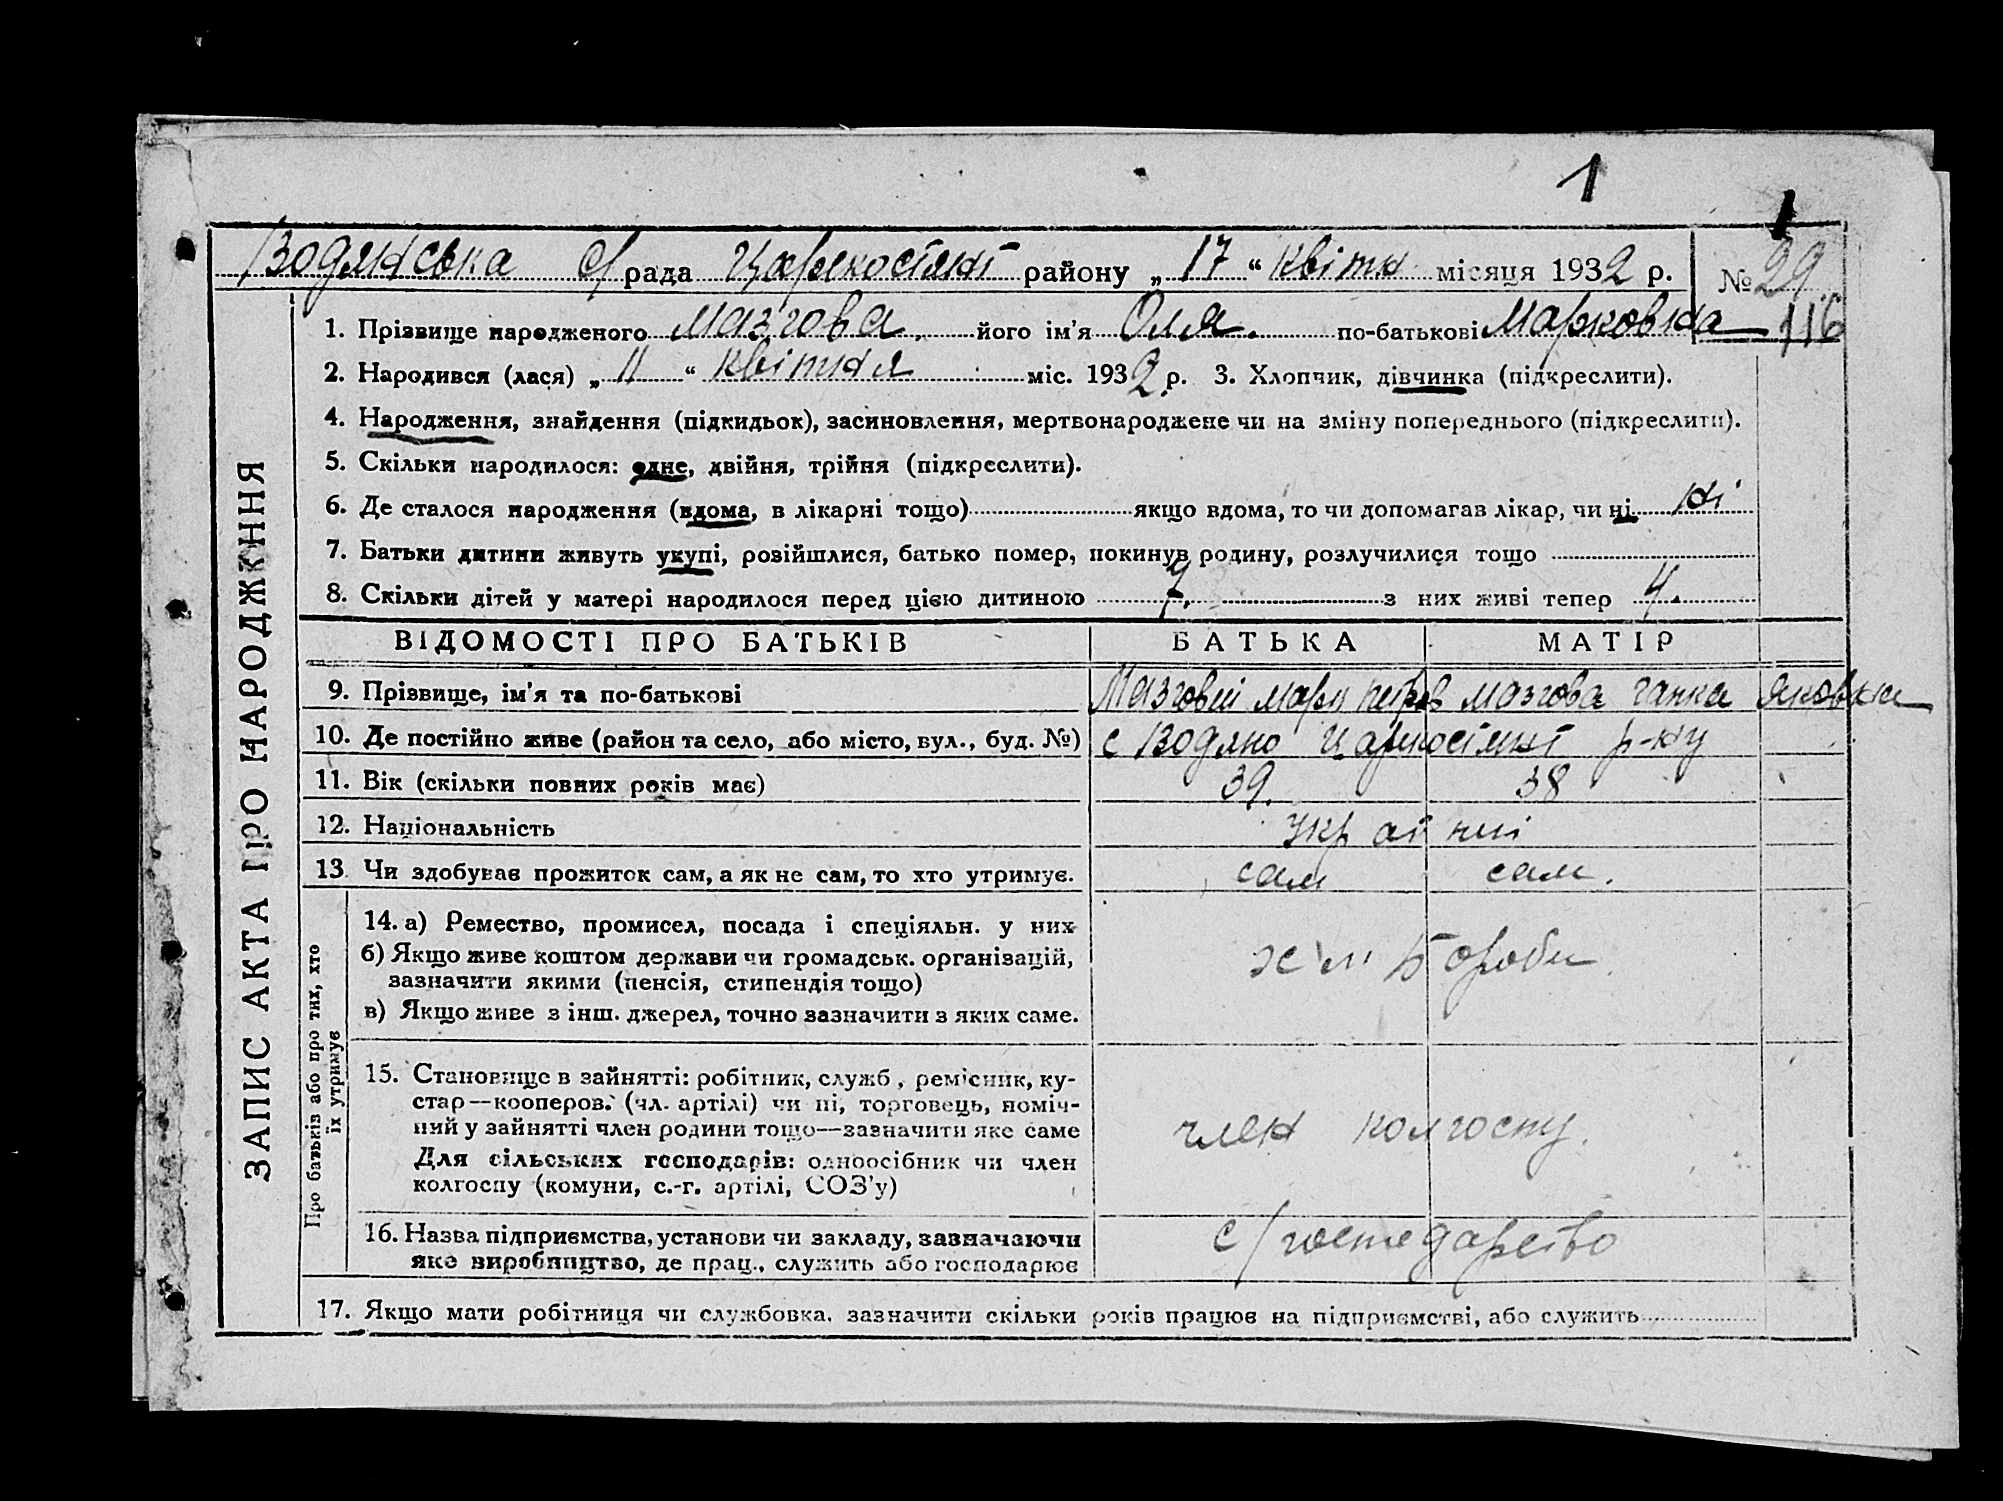 1
Водянська с/рада Царекостянт району „ 17 “ квітн місяця 1932 р. № 29
116
1. Прізвище народженого Мазгова його ім'я Оля. по-батькові Марковна
2. Народився (лася) „ 11 “ квітня міс. 1932 р. 3. Хлопчик, дівчинка (підкреслити).
4. Народження, знайдення (підкидьок), засиновлення, мертвонароджене чи на зміну попереднього (підкреслити).
5. Скільки народилося: одне, двійня, трійня (підкреслити).
6. Де сталося народження (вдома, в лікарні тощо) якщо вдома, то чи допомагав лікар, чи ні ні
7. Батьки дитини живуть укупі, розійшлися, батько помер, покинув родину, розлучилися тощо
8. Скільки дітей у матері народилося перед цією дитиною 7. з них живі тепер 4.
ВІДОМОСТІ ПРО БАТЬКІВ БАТЬКА МАТІР
9. Прізвище, ім'я та по-батькові Мазговий Марк Мазгова Ганна Яковна
10. Де постійно живе (район та село, або місто, вул., буд. №) с Водяно р-ну
11. Вік (скільки повних років має) 39. 38
12. Національність Українці
13. Чи здобував прожиток сам, а як не сам, то хто утримує. сам сам.
14. а) Ремество, промисел, посада і спеціяльн. у них
б) Якщо живе коштом держави чи громадськ. організацій,
зазначити якими (пенсія, стипендія тощо)
в) Якщо живе з інш. джерел, точно зазначити з яких саме.
15. Становище в зайнятті: робітник, служб., ремісник, ку-
стар—кооперов. (чл. артілі) чи ні, торговець, поміч-
ний у зайнятті член родини тощо—зазначити яке саме
Для сільських господарів: одноосібник чи член
колгоспу (комуни, с.-г. артілі, СОЗ'у)
член колгоспу.
16. Назва підприємства, установи чи закладу, зазначаючи
яке виробництво, де прац., служить або господарює
с/господарство
17. Якщо мати робітниця чи службовка, зазначити скільки років працює на підприємстві, або служить
ЗАПИС АКТА ПРО НАРОДЖЕННЯ
Про батьків або про тих, хто
їх утримує